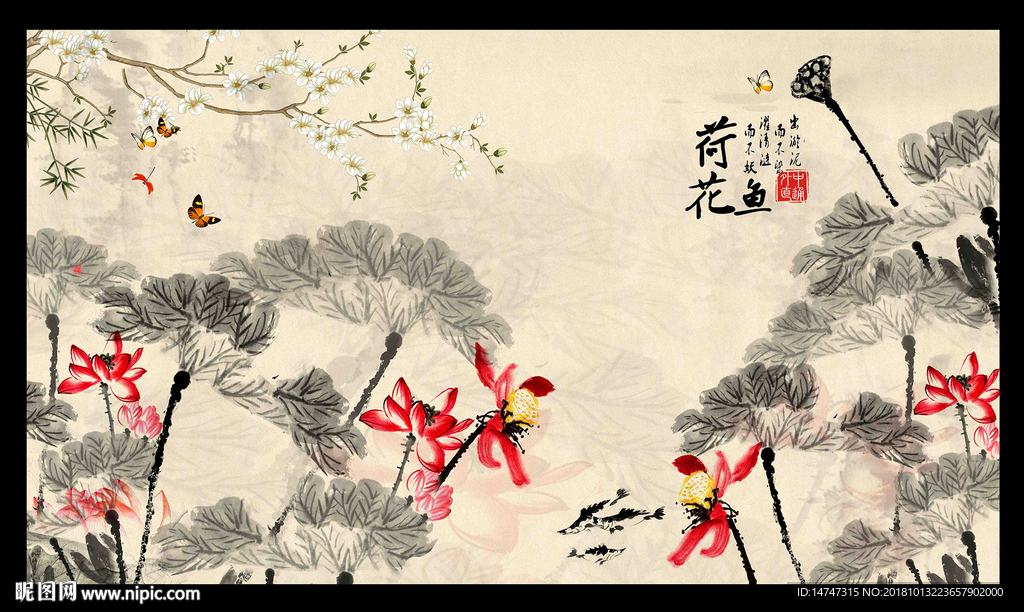 荷花
鱼
出淤泥
而不染
濯清涟
而不妖
中通
外直
昵图网 www.nipic.com
ID:14747315 NO:20181013223657902000